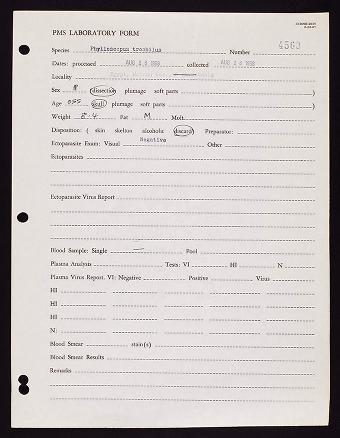 PMS LABORATORY FORM
Species Phylloscopus trochilus Number 4563
Dates: processed AUG 28 1968 collected AUG 28 1968
Locality
Sex ( dissection plumage soft parts )
Age oss ( skull plumage soft parts )
Weight 8.4 Fat M Molt
Disposition: ( skin skelton alcoholic discard) Preparator:
Ectoparasite Exam: Visual Negative Other
Ectoparasites
Ectoparasite Virus Report
Blood Sample: Single Pool
Plasma Analysis Tests: VI HI N
Plasma Virus Report. VI: Negative Positive Virus
HI
HI
HI
N:
Blood Smear stain(s)
Blood Smear Results
Remarks